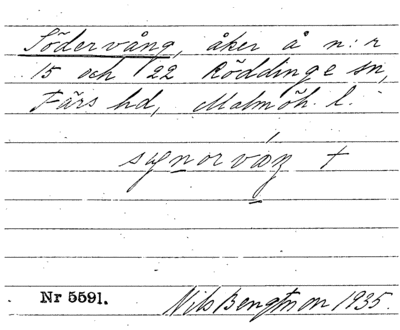 Södervång, åker å n:r
15 och 22 Röddinge sn,
Färs hd, Malmöh. l.
†
Nr 5591.
Nils Bengtsson 1935.